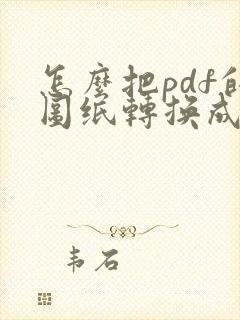 怎麼把pdf的
圖紙轉換成
韦石